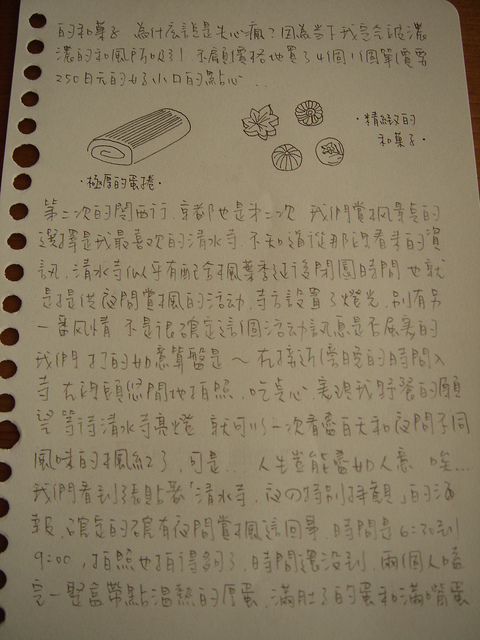 的和菓子 為什麼說是失心瘋？因為當下我完全被濃
濃的和風所吸引 不顧價格地買了4個1個單價需
250日元的好小口的點心...
·精緻的
和菓子·
·極厚的蛋捲·
第二次的關西行，京都也是第二次 我們賞楓景點的
選擇是我最喜歡的清水寺，不知道從那裡看來的資
訊，清水寺似乎有配合楓葉季延後閉園時間 也就
是提供夜間賞楓的活動，寺方設置了燈光，別有另
一番風情 不是很確定這個活動訊息是否屬實的
我們 打的如意算盤是～在接近傍晚的時間入
寺 在裡頭悠閒地拍照，吃點心 實現我野餐的願
望 等待清水寺亮燈 就可以一次看盡白天和夜間不同
風味的楓紅了，可是... 人生豈能盡如人意 唉...
我們看到張貼著「清水寺，夜の特別拝観」的海
報，確定的確有夜間賞楓這回事，時間是6:30到
9:00，拍照也拍得夠了，時間還沒到，兩個人嗑
完一整盒帶點溫熱的厚蛋，滿肚子的蛋和滿嘴蛋